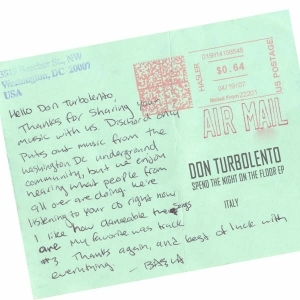 St, NW
Washington, DC 20007
USA
$0.64
US POSTAGE
HASLER
AIR MAIL
Hello Don Turbolento,
Thanks for sharing your
music with us. Dischord only
puts out music from the
Washington DC underground
community, but we enjoy
hearing what people from
all over are doing. We're
listening to your CD right now.
I like how danceable the songs
are. My favorite was track
#3. Thanks again, and best of luck with
everything.
DON TURBOLENTO
SPEND THE NIGHT ON THE FLOOR EP
ITALY